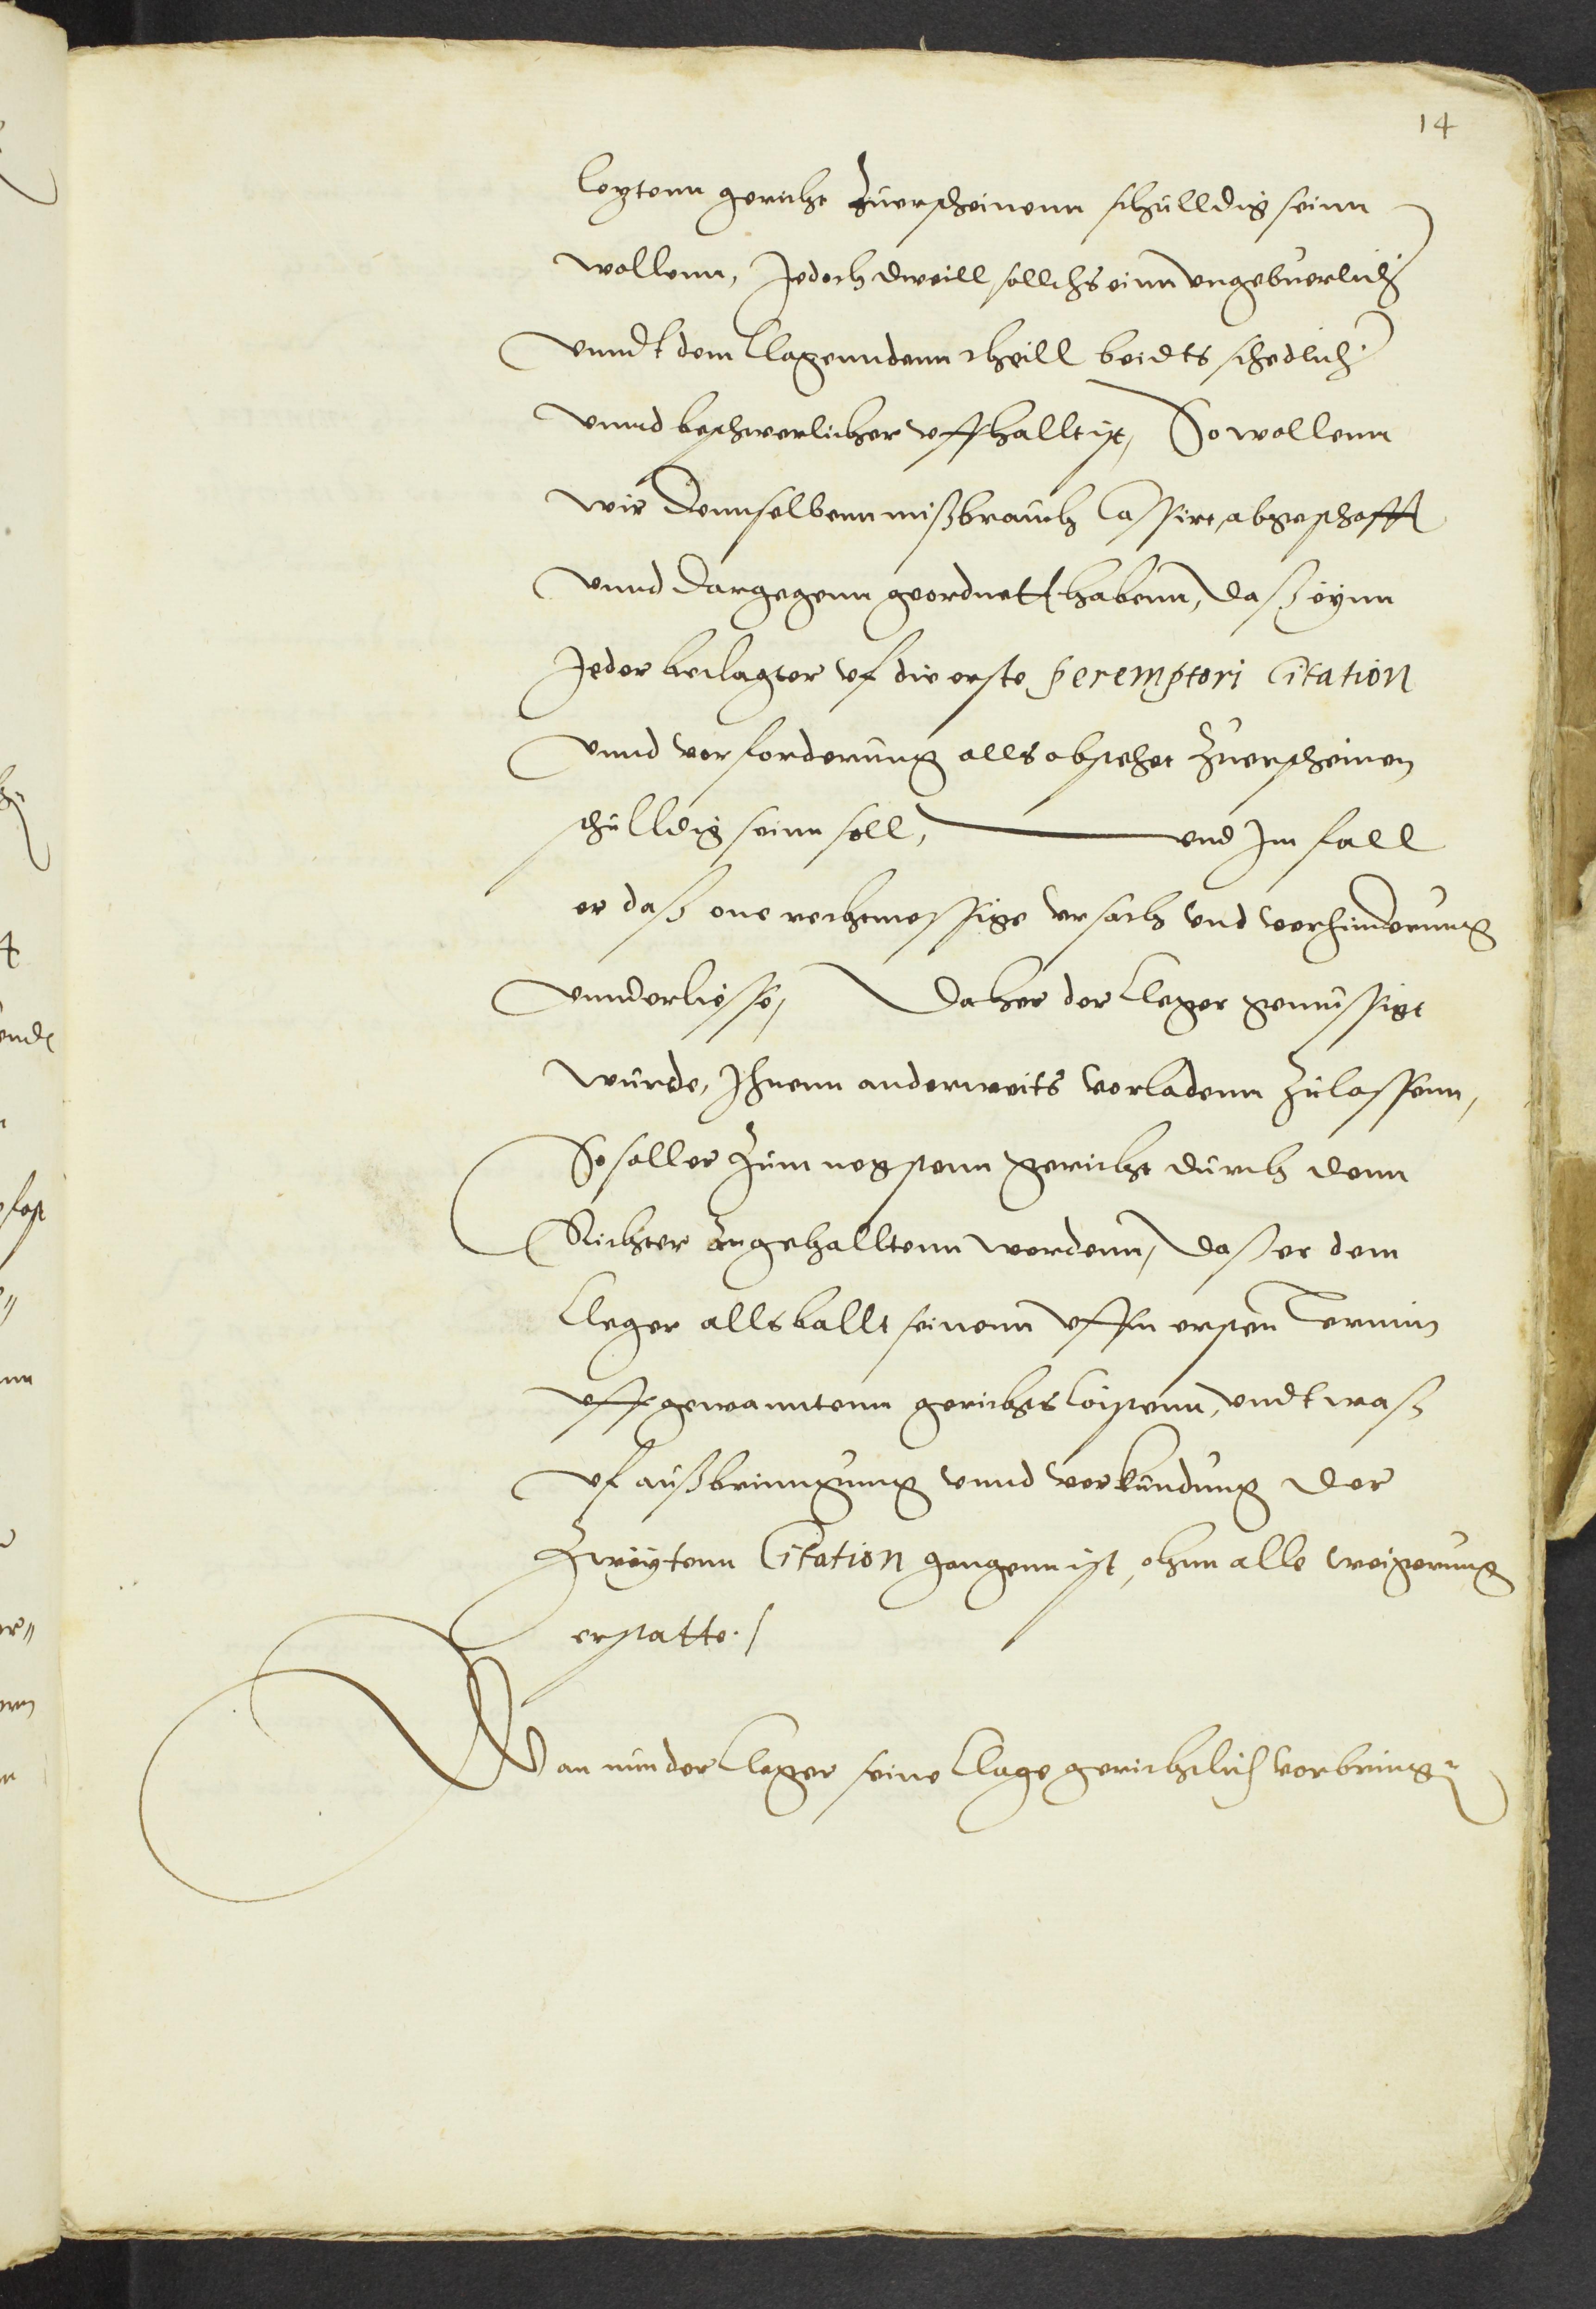 14
leztenn gericht zuerscheinenn schulldig seinn
wollenn, Jedoch dweill sollchs einn ungebuerlich
unndt dem Clagenndenn theill beidts schedlich
unnd beschwerlicher uffhallt ist, So wollenn
wir dennselbenn mißbrauch Cassirt, abgeschafft
unnd dargegenn geordnett habenn, daß eynn
Jeder beclagter uf die erste peremptori Citation
unnd vorforderung alls obstehet zuerscheinen
schulldig seinn soll, und Im fall
er daß one rechtmessige ursach und verhinderung
unnderliesse, Daher der Cleger gemussigt
wurde, Ihnenn anderweits vorladenn zulassenn,
So soll er zum negstenn gericht durch denn
Richter angehalltenn werdenn, daß er dem
Cleger alls ballt seinenn uffm ersten Termin
uffgewanntenn gerichts Costenn, undt waß
uf außbringung unnd verkundung der
zweytenn Citation gangenn ist, ohnn alle weigerung
erstatte./
Wan nun der Cleger seine Clage gerichtlich vorbring=